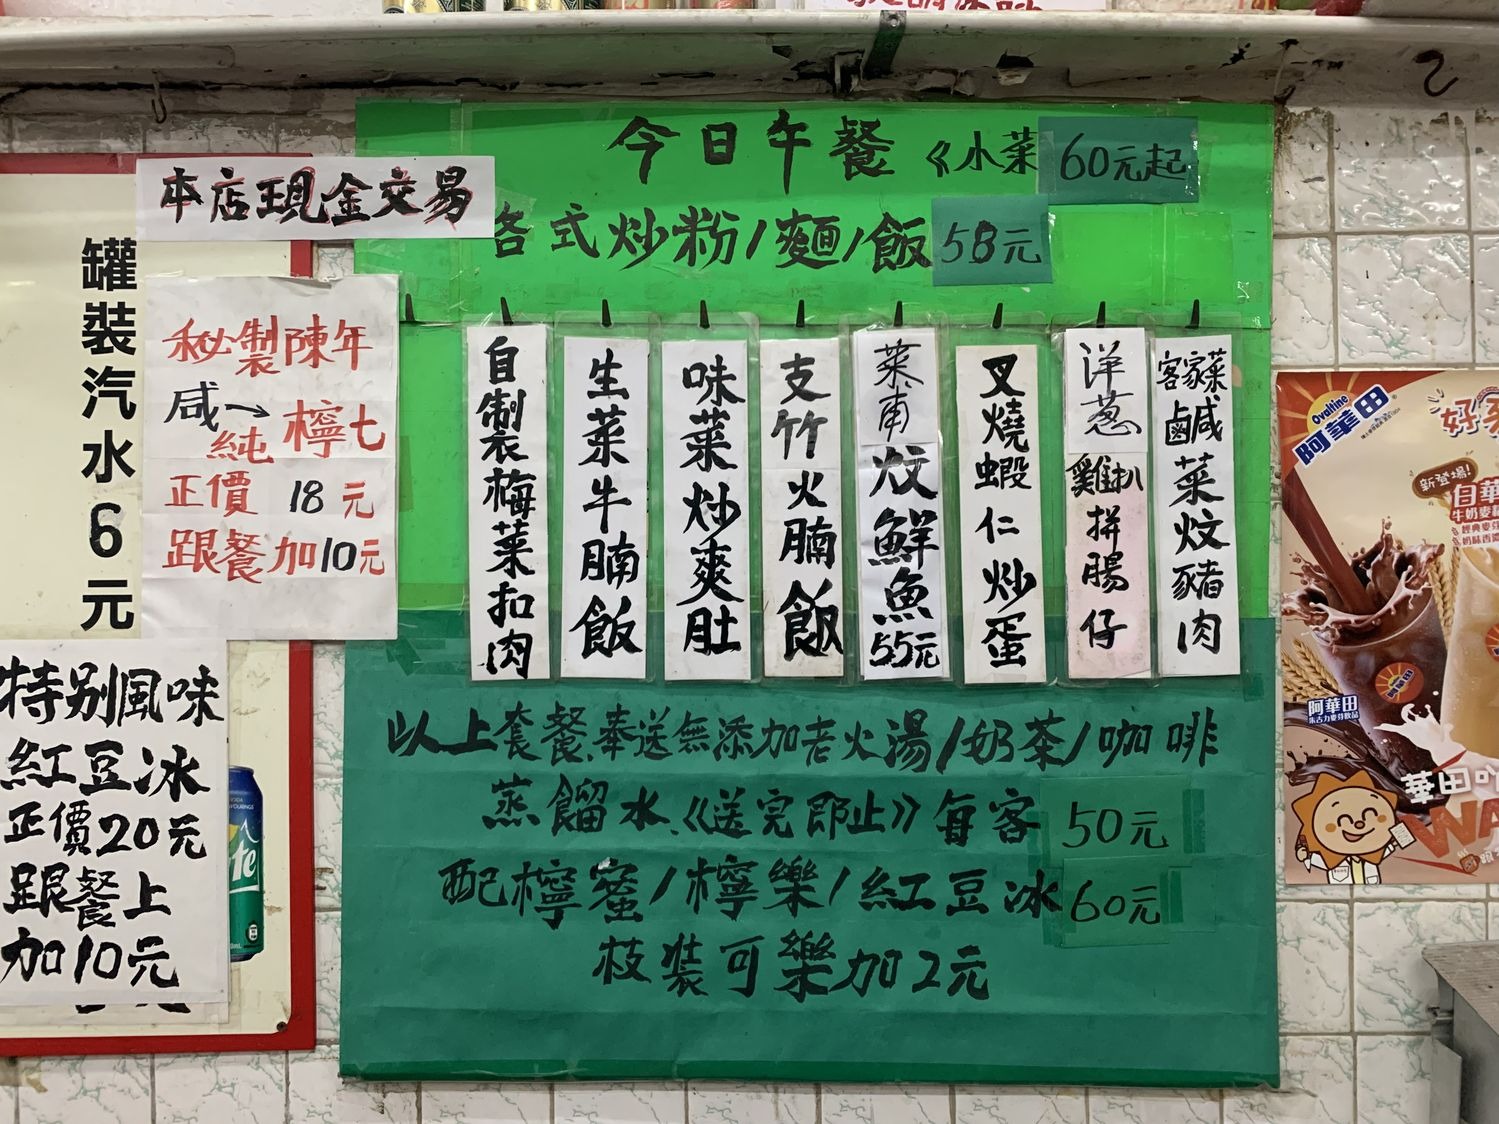 本店現金交易
罐裝汽水6元
秘製陳年
咸檸七
純
正價 18元
跟餐加10元
特别風味
紅豆冰
正價20元
跟餐上
加10元
今日午餐《小菜60元起
各式炒粉/麵/飯58元
自制裝梅菜扣肉
生菜牛腩飯
味菜炒爽肚
支竹火腩飯
菜甫炆鮮魚55元
叉燒蝦仁炒蛋
洋葱雞扒拼腸仔
客家菜鹹菜炆豬肉
以上套餐奉送無添加老火湯/奶茶/咖啡
蒸餾水《送完即止》每客50元
配檸蜜/檸樂/紅豆冰60元
枝裝可樂加2元
Ovaltine
阿華田
新登場!
阿華田
朱古力麥芽飲品
華田